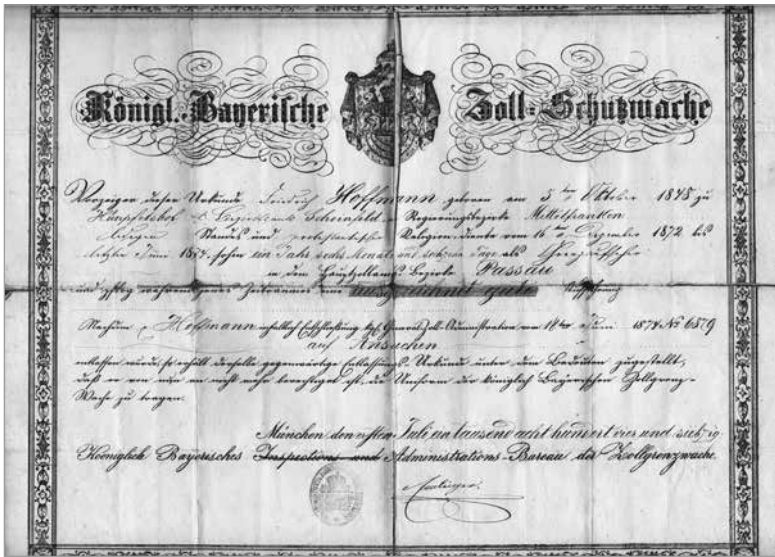 Königl. Bayerische Zoll-Schutzwache
Vorzeiger dieser Urkunde Friedrich Hoffmann geboren am 5ten Oktober 1848 zu
Bezirksamt Scheinfeld Regierungsbezirks Mittelfranken
ledigen Standes und protestantischer Religion, diente vom 16ten Dezember 1872 bis
letzten Juni 1874, sohin ein Jahr sechs Monate und sechzehn Tage als
in dem Hauptzollamts-Bezirke Passau
und pflog während jenes Zeitraumes eine ausgezeichnet gute Aufführung
Nachdem p. Hoffmann inhaltlich Entschließung kgl. General-Zoll-Administration vom 18ten Juni 1874 No 6879
auf Ansuchen
entlassen wurde, so erhält derselbe gegenwärtige Entlassungs-Urkunde unter dem Bedeuten zugestellt,
daß er von nun an nicht mehr berechtiget ist, die Uniform der königlich Bayerischen Zollgrenz-
Wache zu tragen.
München den ersten Juli ein tausend acht hundert vier und siebzig
Königlich Bayerisches Inspections und Administrations-Bureau der Zollgrenzwache.